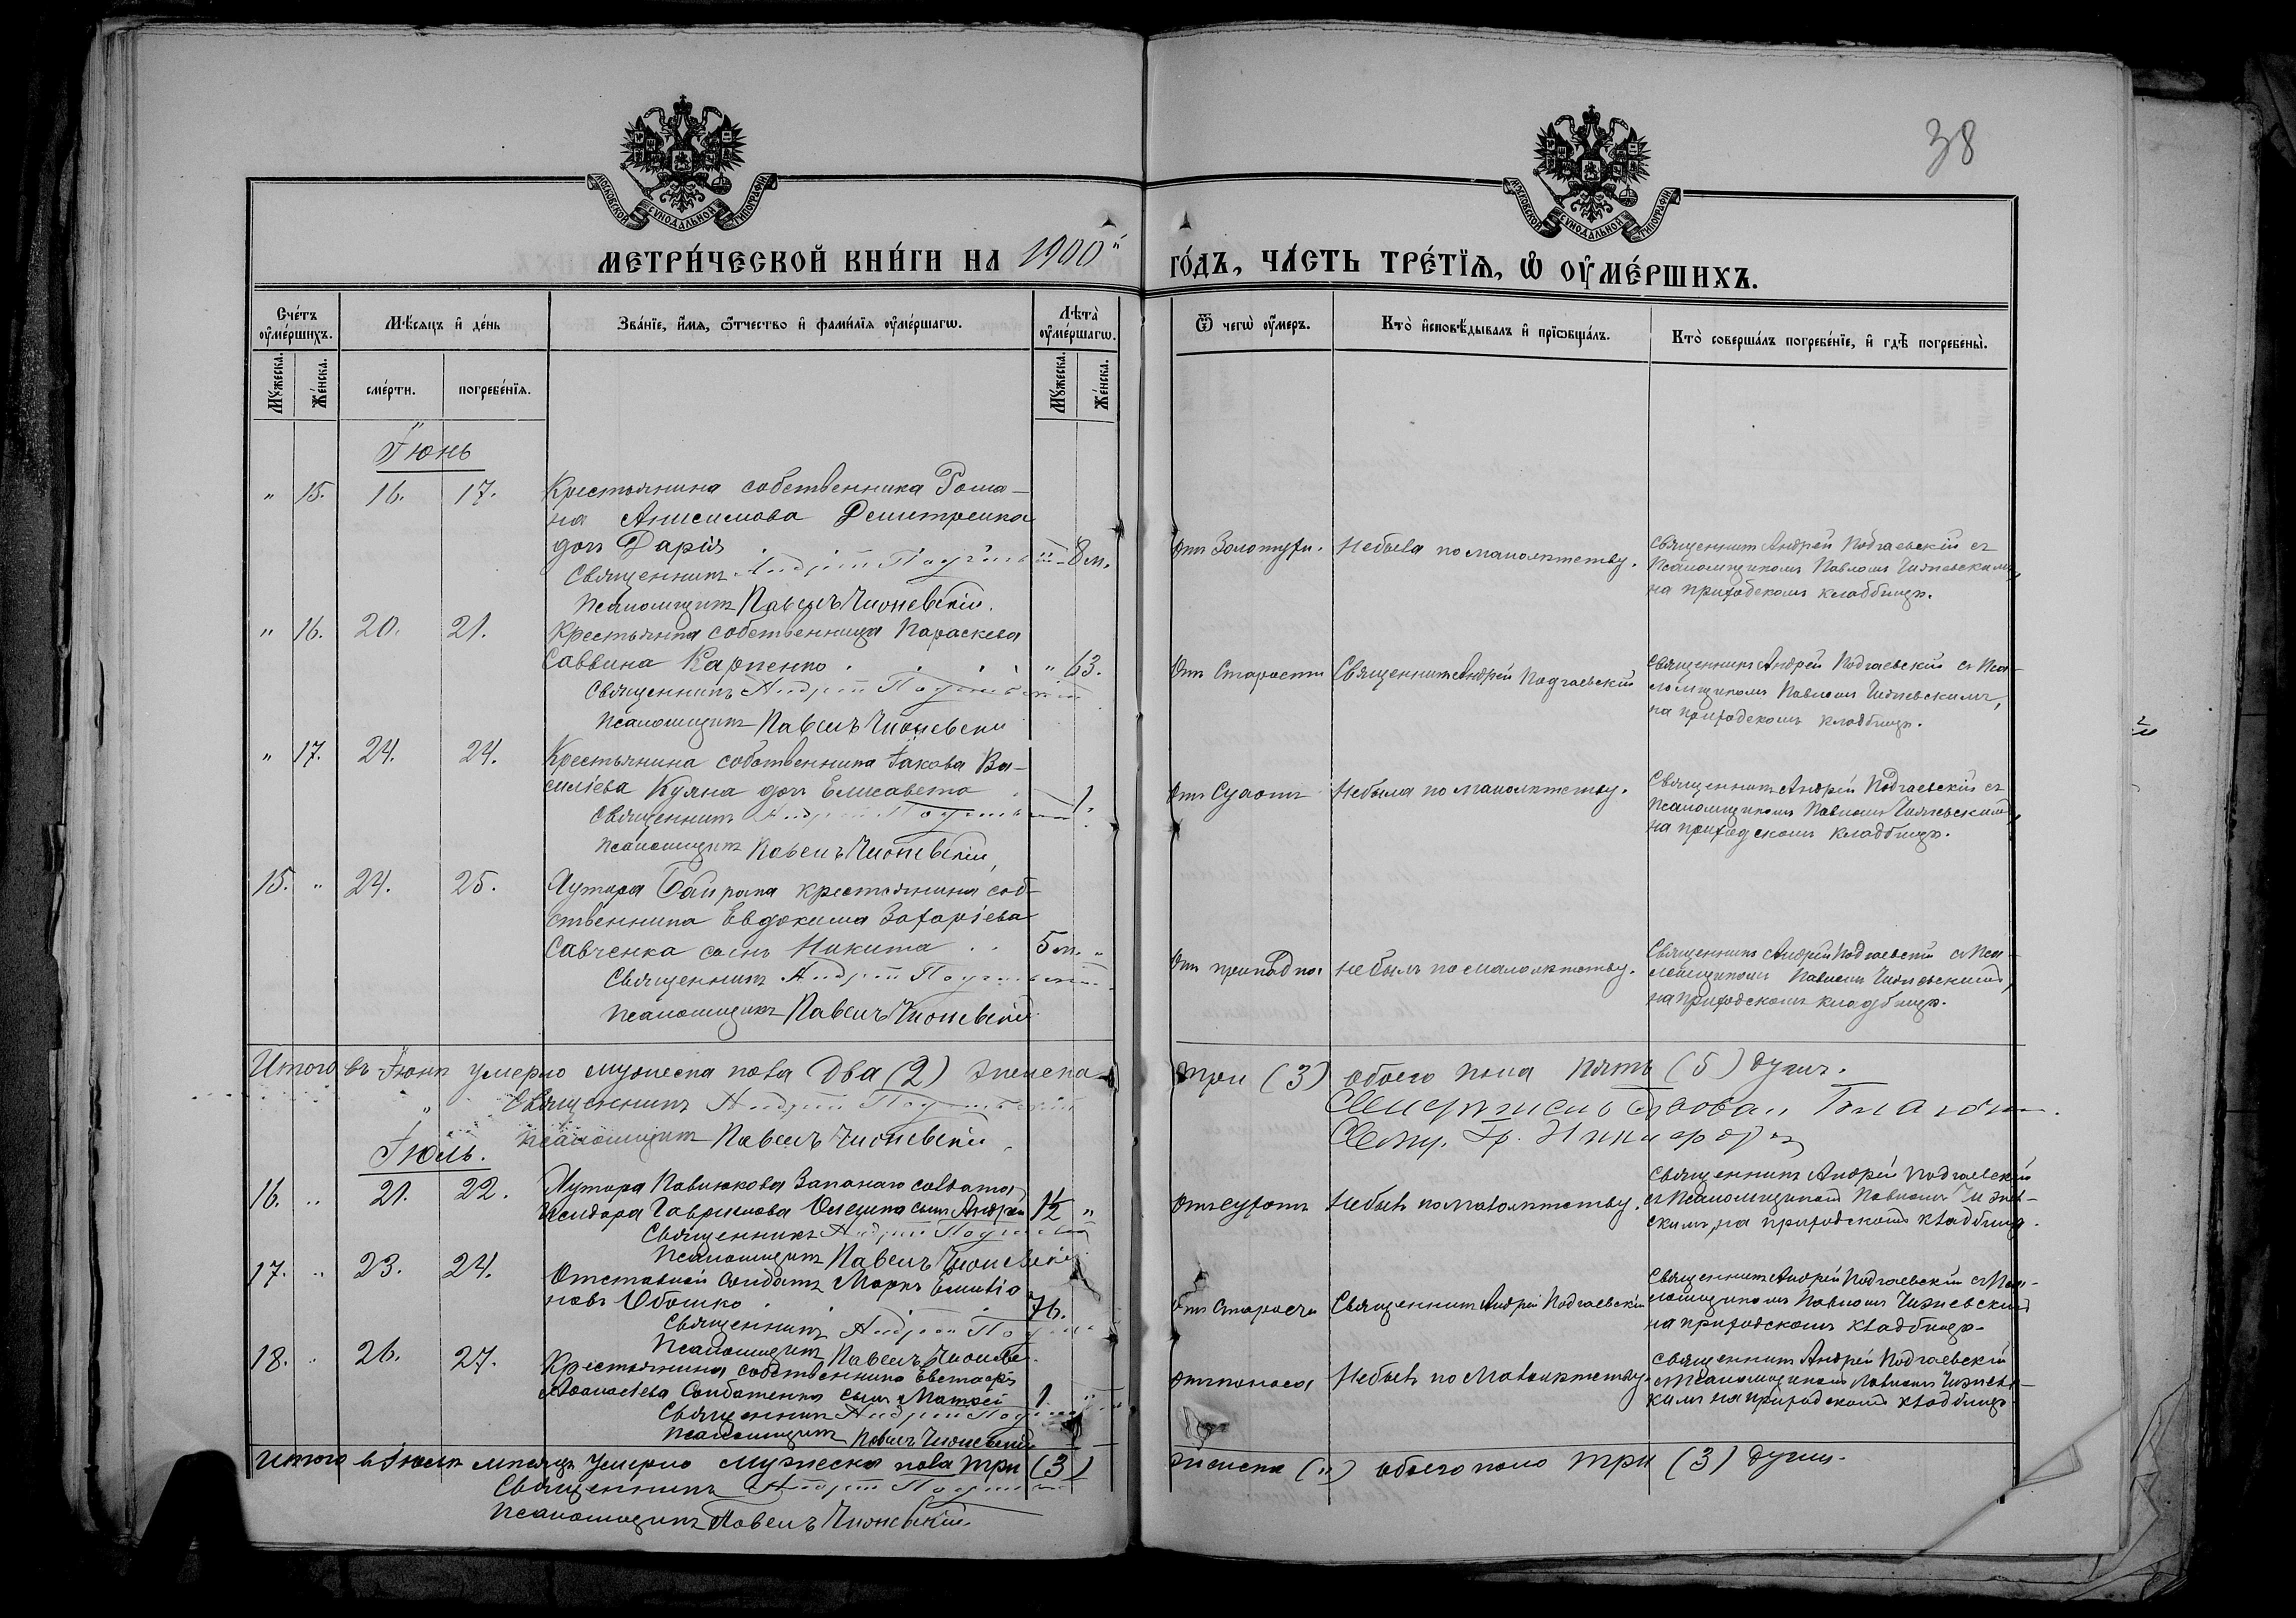 38
МОСКОВСКОЙ СУНОДАЛЬНОЙ ТИПОГРАФІИ
МОСКОВСКОЙ СУНОДАЛЬНОЙ ТИПОГРАФІИ
МЕТРИ́ЧЕСКОЙ КНИ́ГИ НА 1900й
ГО́ДЪ, ЧА́СТЬ ТРЕ́ТЇѦ, Ѡ҆ ОУ҆МЕ́РШИХЪ.
Сче́тъ оу҆ме́ршихъ.
Мꙋ́жеска.
Же́нска.
Мѣ́сяцъ и҆ де́нь
сме́рти.
погребе́нїѧ.
Зва́нїе, и҆́мѧ, ѻ҆́тчество и҆ фами́лїѧ оу҆ме́ршагѡ.
Лѣ́та̀ оу҆ме́ршагѡ.
Мꙋ́жеска.
Же́нска.
Ѿ чегѡ̀ оу҆́меръ.
Кто̀ и҆сповѣ́дывалъ и҆ прїѡбща́лъ.
Кто̀ соверша́лъ погребе́нїе, и҆ гдѣ̀ погребены̀.
Іюнь
" 15. 16. 17. Крестьянина собственника Рома-
на Анисимова Деметренка
дочь Дарія 8 м.
Священникъ Андрей
Псаломщикъ Павелъ Чижевскій.
Отъ Золотухи. Небыла по малолѣтству.
Священникъ Андрей Подгаевскій съ
Псаломщикомъ Павломъ Чижевскимъ,
на приходскомъ кладбищѣ.
" 16. 20. 21. Крестьянка собственница Параскева
Саввина Карпенко " 63.
Священникъ Андрей
Псаломщикъ Павелъ Чижевскій
Отъ Старости Священникъ Андрей Подгаевскій
Священникъ Андрей Подгаевскій съ Пса-
ломщикомъ Павломъ Чижевскимъ,
на приходскомъ кладбищѣ.
" 17. 24. 24. Крестьянина собственника Іакова Ва-
силіева Куяна дочь Елисавета 1.
Священникъ Андрей
Псаломщикъ Павелъ Чижевскій
Небыла по малолѣтству.
Священникъ Андрей Подгаевскій съ
Псаломщикомъ Павломъ Чижевскимъ,
на приходскомъ кладбищѣ.
15. " 24. 25. Хутора крестьянина соб-
ственника Евдокима Захаріева
Савченка сынъ Никита 5 м. "
Священникъ Андрей
Псаломщикъ Павелъ Чижевскій
Отъ небылъ по малолѣтству.
Священникъ Андрей Подгаевскій съ Пса-
ломщикомъ Павломъ Чижевскимъ,
на приходскомъ кладбищѣ.
Итого въ Іюнѣ умерло мужеска пола Два (2) женска
три (3) обоего пола пять (5) душъ.
Священникъ Андрей
Псаломщикъ Павелъ Чижевскій
Іюль.
16. " 21. 22. Хутора Павлюкова Запаснаго солдата
Исидора Гаврилова сынъ Андрей 1½ "
Священникъ Андрей
Псаломщикъ Павелъ Чижевскій
Небылъ по малолѣтству.
Священникъ Андрей Подгаевскій
съ Псаломщикомъ Павломъ Чижев-
скимъ, на приходскомъ кладбищѣ.
17. " 23. 24. Отставной солдатъ Маркъ Емилiа
новъ 76.
Священникъ Андрей
Псаломщикъ Павелъ
Отъ старости Священникъ Андрей Подгаевскій
Священникъ Андрей Подгаевскій съ Пса-
ломщикомъ Павломъ Чижевскимъ
на приходскомъ кладбищѣ.
18. " 26. 27. Крестьянина собственника Евстафія
Аѳанасіева Солбатенка сынъ Матѳей 1. "
Священникъ Андрей
Псаломщикъ Павелъ Чижевскій
Отъ поноса Небылъ по Малолѣтству
Священникъ Андрей Подгаевскій
съ Псаломщикомъ Павломъ Чижевс-
кимъ на приходскомъ кладбищѣ
Итого въ Іюлѣ мѣсяцѣ умерло мужеска пола три (3)
женска (") обоего пола три (3) души.
Священникъ Андрей
Псаломщикъ Павелъ Чижевскій